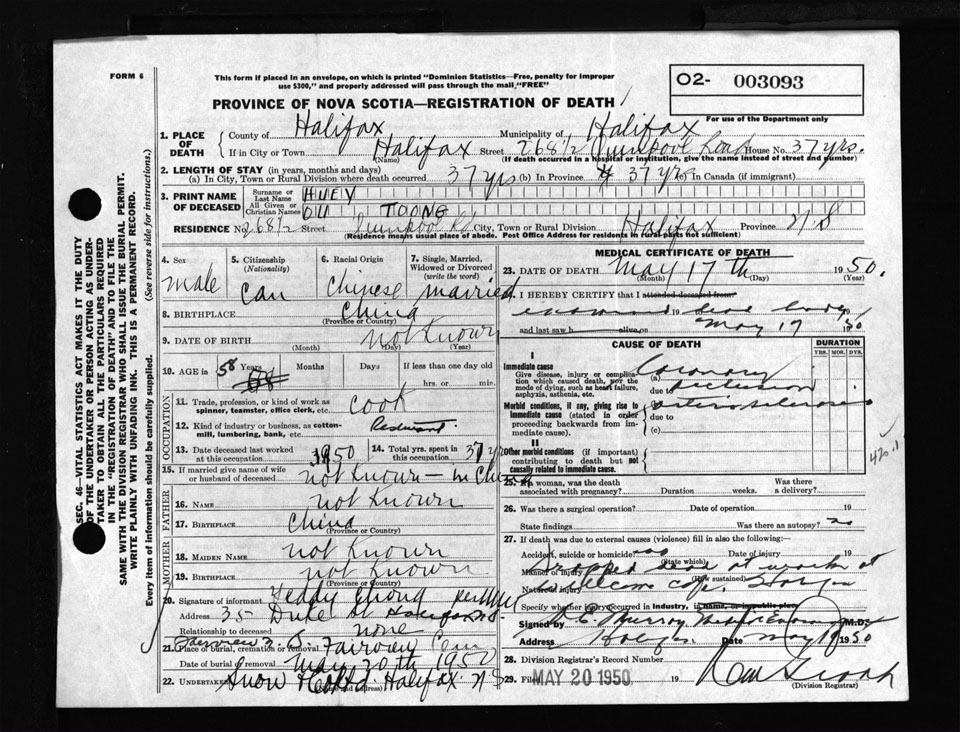 FORM 6
This form if placed in an envelope, on which is printed "Dominion Statistics—Free, penalty for improper
use $300," and properly addressed will pass through the mail "FREE"
O2- 003093
For use of the Department only
PROVINCE OF NOVA SCOTIA—REGISTRATION OF DEATH
1. PLACE OF DEATH
County of Halifax Municipality of Halifax
If in City or Town Halifax Street 268½ House No. 37 yrs.
(Name) (If death occurred in a hospital or institution, give the name instead of street and number)
2. LENGTH OF STAY (in years, months and days)
(a) In City, Town or Rural Division where death occurred 37 yrs (b) In Province 37 yrs (c) In Canada (if immigrant)
3. PRINT NAME OF DECEASED
Surname or Last Name HUEY
All Given or Christian Names OU TOONG
RESIDENCE No. 268½ Street City, Town or Rural Division Halifax Province N.S
(Residence means usual place of abode. Post Office Address for residents in rural parts not sufficient)
4. Sex male
5. Citizenship (Nationality) Can
6. Racial Origin Chinese
7. Single, Married, Widowed or Divorced (write the word) married
8. BIRTHPLACE China
(Province or Country)
9. DATE OF BIRTH not known
(Month) (Day) (Year)
10. AGE in 58 Years Months Days If less than one day old
hrs. or min.
OCCUPATION
11. Trade, profession, or kind of work as spinner, teamster, office clerk, etc. cook
12. Kind of industry or business, as cotton-mill, lumbering, bank, etc. Restaurant
13. Date deceased last worked at this occupation 1950
14. Total yrs. spent in this occupation 37 yrs
15. If married give name of wife or husband of deceased not known - in China
FATHER
16. Name not known
17. Birthplace China
(Province or Country)
MOTHER
18. Maiden Name not known
19. Birthplace not known
(Province or Country)
20. Signature of informant Teddy
Address 35 Duke St Halifax
Relationship to deceased none
21. Place of burial, cremation or removal Fairview Cem
Date of burial or removal May 20th 1950
22. Undertaker Snow & Co Ltd Halifax N S
MEDICAL CERTIFICATE OF DEATH
23. DATE OF DEATH May 17th 1950.
(Month) (Day) (Year)
24. I HEREBY CERTIFY that I attended deceased from
examined 19 dead body 19
and last saw h alive on May 17 1950
CAUSE OF DEATH
DURATION
YRS. MOS. DYS.
I
Immediate cause
Give disease, injury or complication which caused death, not the mode of dying, such as heart failure, asphyxia, asthenia, etc.
(a) Coronary
due to occlusion
Morbid conditions, if any, giving rise to immediate cause (stated in order proceeding backwards from immediate cause).
(b) arteriosclerosis
due to
(c)
II
Other morbid conditions (if important) contributing to death but not causally related to immediate cause.
25. If a woman, was the death associated with pregnancy? Duration weeks. Was there a delivery?
26. Was there a surgical operation? Date of operation 19
State findings Was there an autopsy? no
27. If death was due to external causes (violence) fill in also the following:—
Accident, suicide or homicide? no Date of injury 19
(State which)
Manner of injury Dropped dead at work at
(How sustained)
Nature of injury
Specify whether injury occurred in industry, in home, or in public place
Signed by Murray M.D.
Address Date May 19 1950
28. Division Registrar's Record Number
29. Filed MAY 20 1950 19
(Division Registrar)
SEC. 46—VITAL STATISTICS ACT MAKES IT THE DUTY
OF THE UNDERTAKER OR PERSON ACTING AS UNDER-
TAKER TO OBTAIN ALL THE PARTICULARS REQUIRED
IN THE "REGISTRATION OF DEATH" AND TO FILE THE
SAME WITH THE DIVISION REGISTRAR WHO SHALL ISSUE THE BURIAL PERMIT.
WRITE PLAINLY WITH UNFADING INK. THIS IS A PERMANENT RECORD.
Every item of information should be carefully supplied. (See reverse side for instructions.)